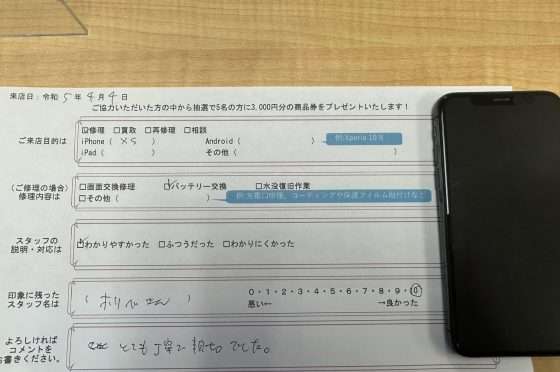 来店日：令和 5 年 4 月 4 日
ご協力いただいた方の中から抽選で5名の方に3,000円分の商品券をプレゼントいたします！
ご来店目的は
☑修理 □買取 □再修理 □相談
iPhone（ XS ） Android（ ） 例:Xperia 10Ⅲ
iPad（ ） その他（ ）
（ご修理の場合）
修理内容は
□画面交換修理 ☑バッテリー交換 □水没復旧作業
□その他（ ） 例:充電口修理、コーティングや保護フィルム貼付けなど
スタッフの
説明・対応は
☑わかりやすかった □ふつうだった □わかりにくかった
印象に残った
スタッフ名は
（ ホリベ さん ）
0・1・2・3・4・5・6・7・8・9・10
悪い← →良かった
よろしければ
コメントを
お書きください。
とても 丁寧で 親切 でした。